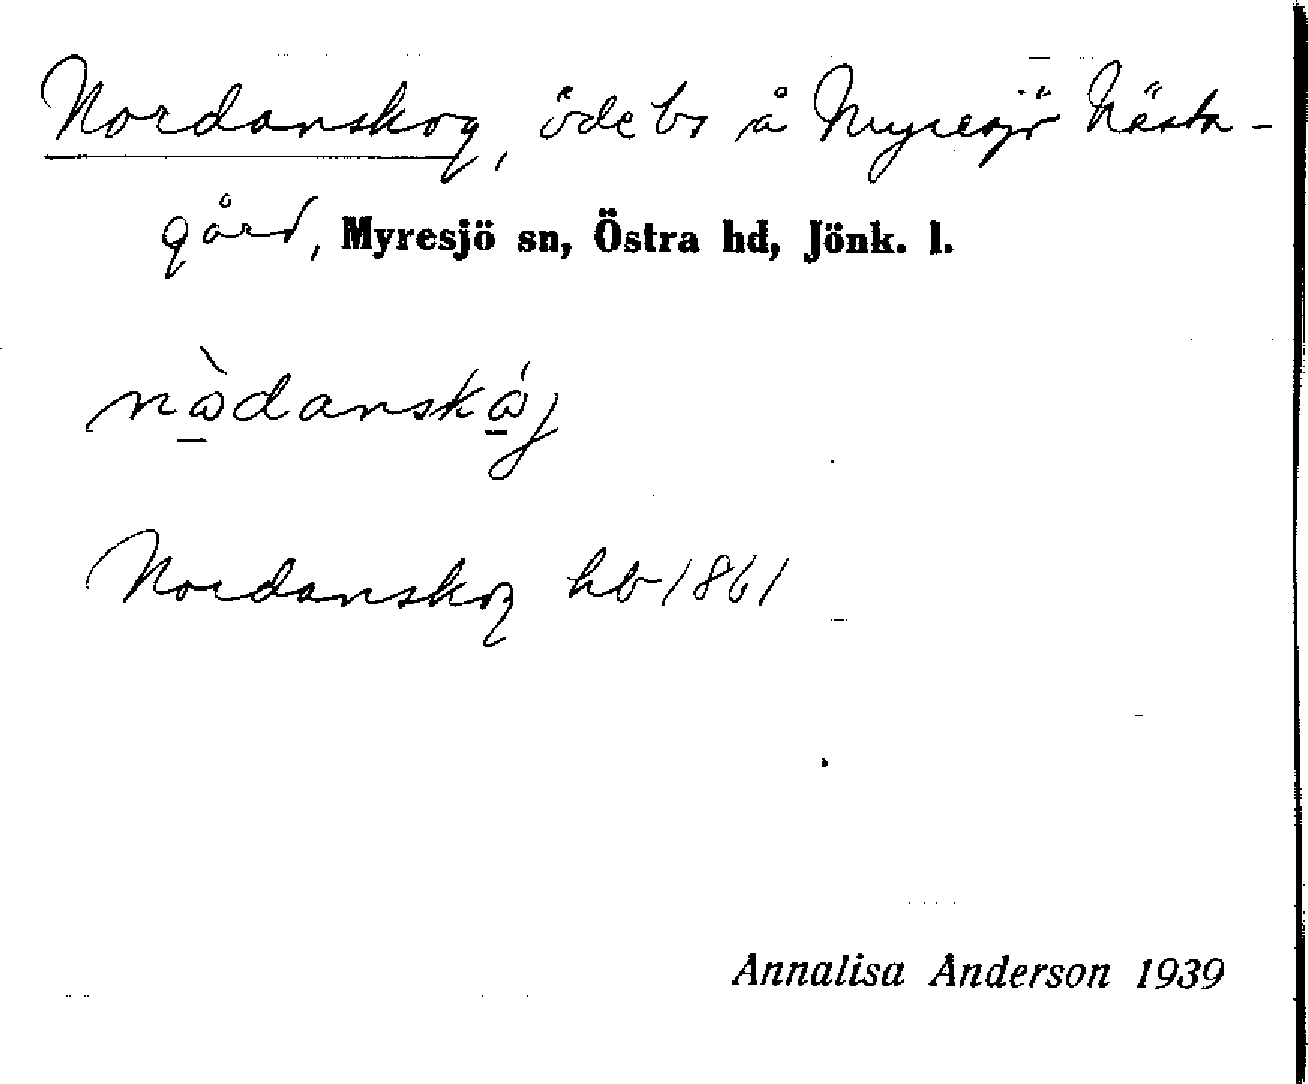 Nordanskog, öde bs å Myresjö Nästa-
gård, Myresjö sn, Östra hd, Jönk. l.
nàdanskáj
Nordanskog hb 1861
Annalisa Anderson 1939